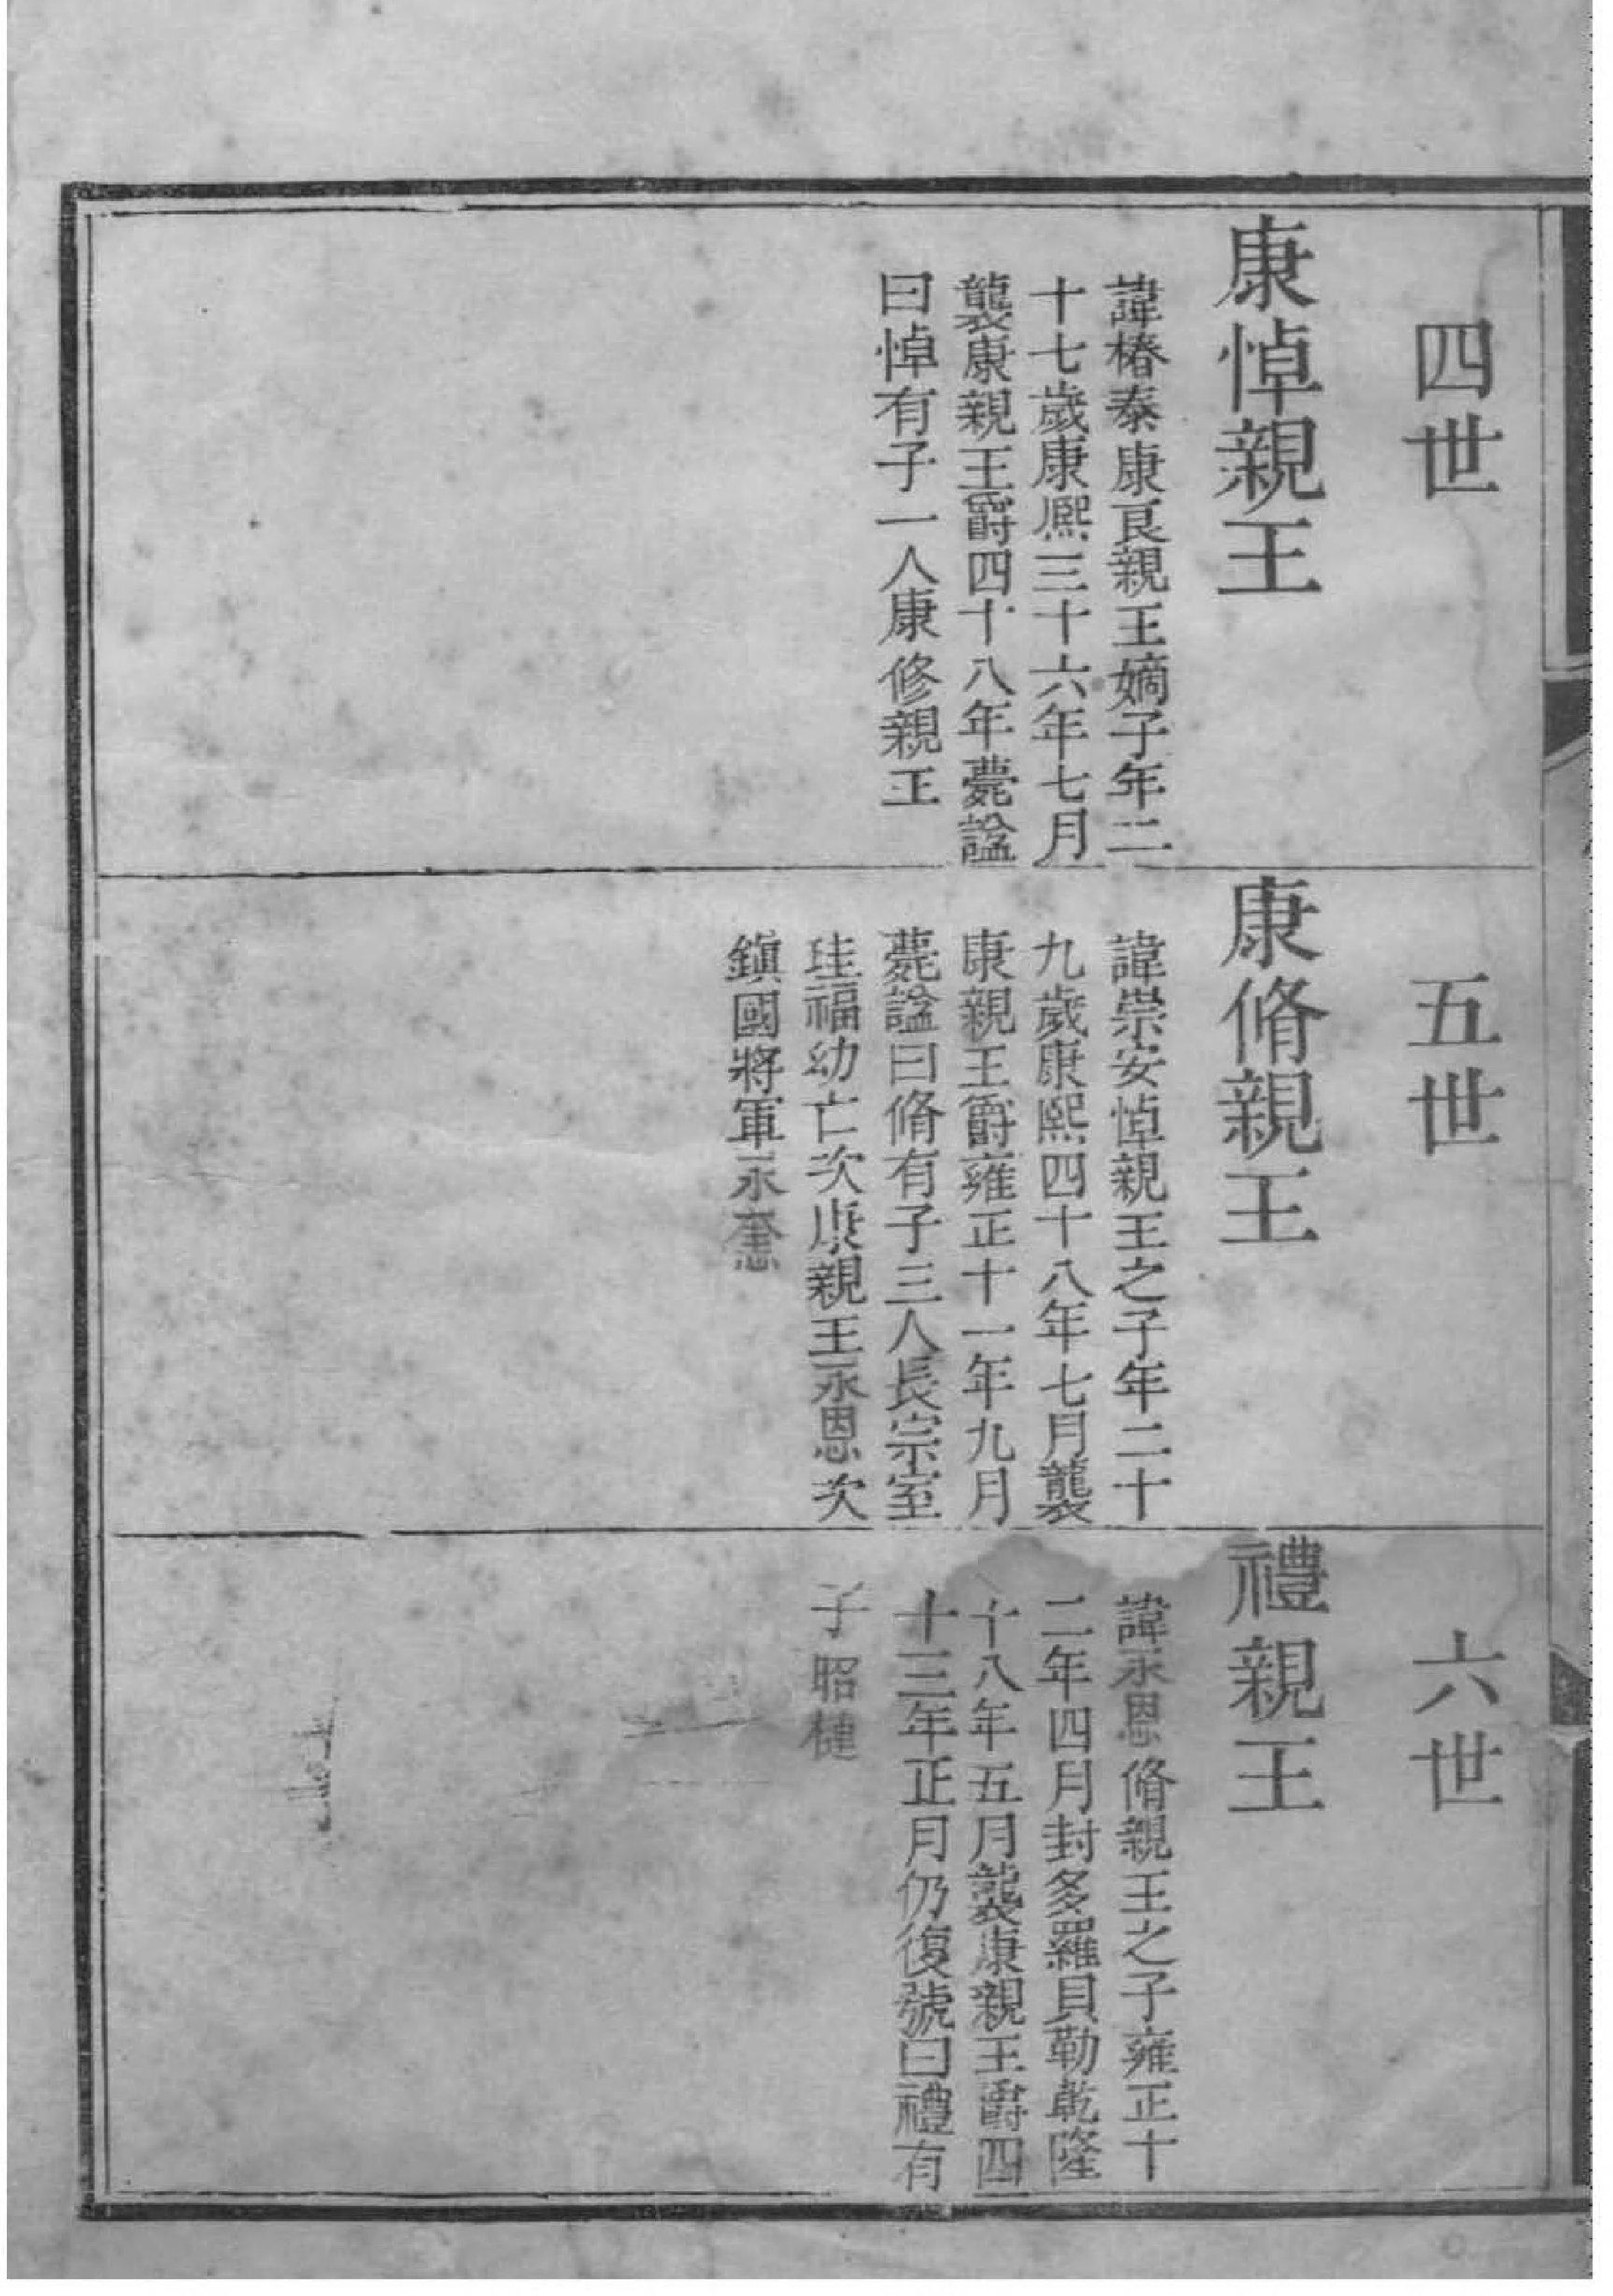 四世
康悼親王
諱椿泰康良親王嫡子年二
十七歲康熙三十六年七月
襲康親王爵四十八年薨諡
曰悼有子一人康修親王
五世
康脩親王
諱崇安悼親王之子年二十
九歲康熙四十八年七月襲
康親王爵雍正十一年九月
薨諡曰脩有子三人長宗室
珪福幼亡次康親王永恩次
鎮國將軍永𢡟
六世
禮親王
諱永恩脩親王之子雍正十
二年四月封多羅貝勒乾隆
十八年五月襲康親王爵四
十三年正月仍復號曰禮有
子昭槤